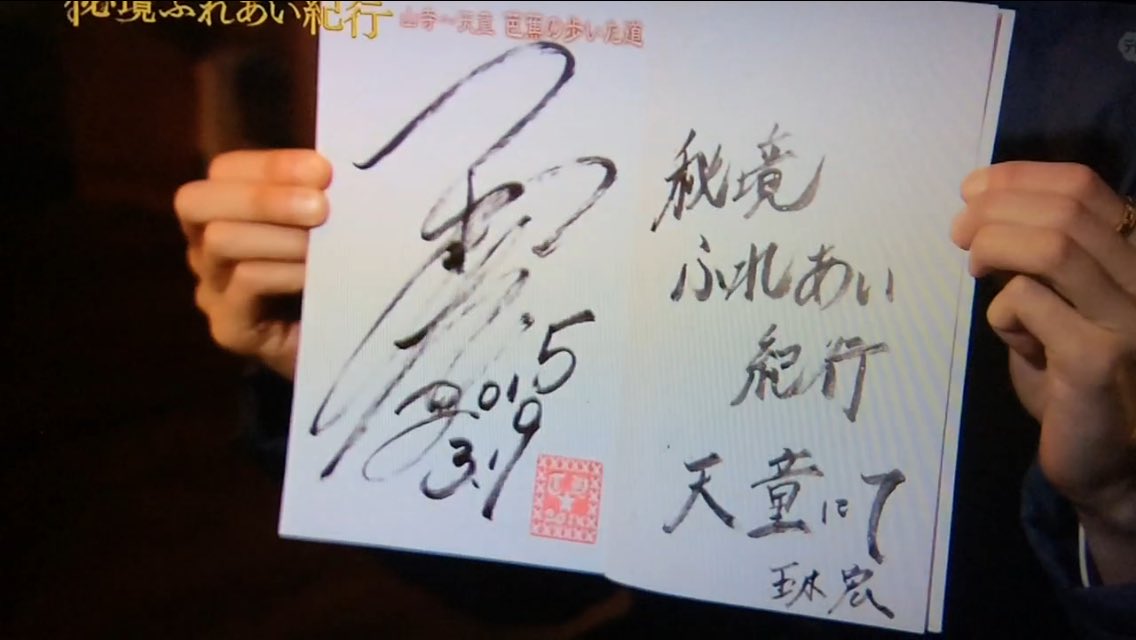 秘境ふれあい紀行
山寺～天童 芭蕉の歩いた道
2015
秘境
ふれあい
紀行
天童にて
玉木宏